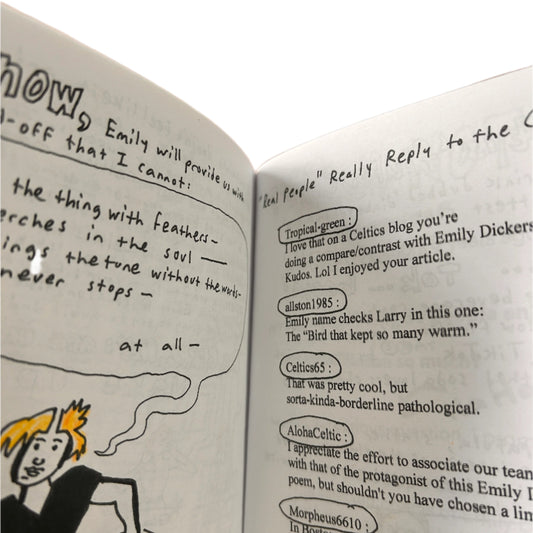 now,
Emily will provide us with
-off that I cannot:
the thing with feathers-
erches in the soul —
ings the tune without the words-
never stops -
at all -
"Real People" Really Reply to the C
Tropical-green:
I love that on a Celtics blog you're
doing a compare/contrast with Emily Dickers
Kudos. Lol I enjoyed your article.
allston1985:
Emily name checks Larry in this one:
The "Bird that kept so many warm."
Celtics65:
That was pretty cool, but
sorta-kinda-borderline pathological.
AlohaCeltic:
I appreciate the effort to associate our tean
with that of the protagonist of this Emily D
poem, but shouldn't you have chosen a lin
Morpheus6610:
In Boston